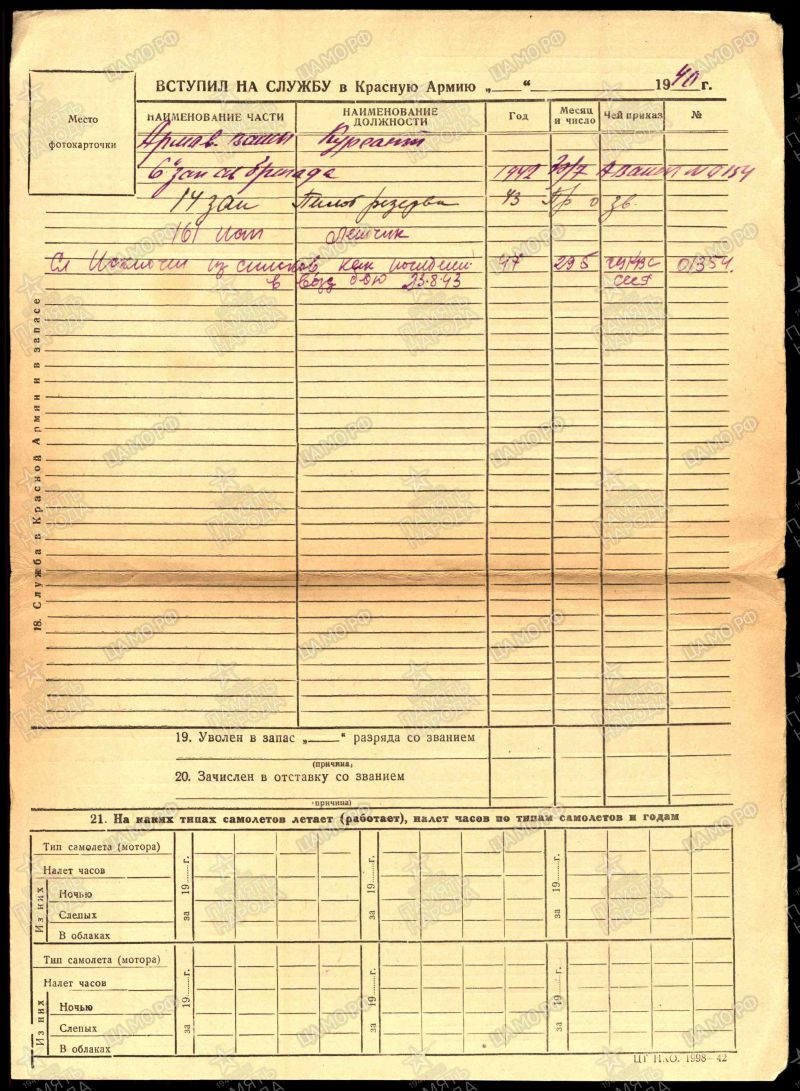 ВСТУПИЛ НА СЛУЖБУ в Красную Армию „____“ ____________ 1940 г.
Место
фотокарточки
НАИМЕНОВАНИЕ ЧАСТИ НАИМЕНОВАНИЕ ДОЛЖНОСТИ Год Месяц и число Чей приказ №
Армав. Курсант
6 зап ав бригада 1942 30/7 №0154
14 зап Пилот резерва 43 Пр о зв.
161 иап Летчик
из списков, как погибший 47 295 01354.
в возд бою 23.8.43 СССР
18. Служба в Красной Армии и в запасе
19. Уволен в запас „____“ разряда со званием
(причина)
20. Зачислен в отставку со званием
(причина)
21. На каких типах самолетов летает (работает), налет часов по типам самолетов и годам
Тип самолета (мотора)
Налет часов
Из них
Ночью
Слепых
В облаках
за 19 г. за 19 г. за 19 г.
Тип самолета (мотора)
Налет часов
Из них
Ночью
Слепых
В облаках
за 19 г. за 19 г. за 19 г.
ЦТ НКО. 1998—42
ЦАМО.РФ
ПАМЯТЬ НАРОДА